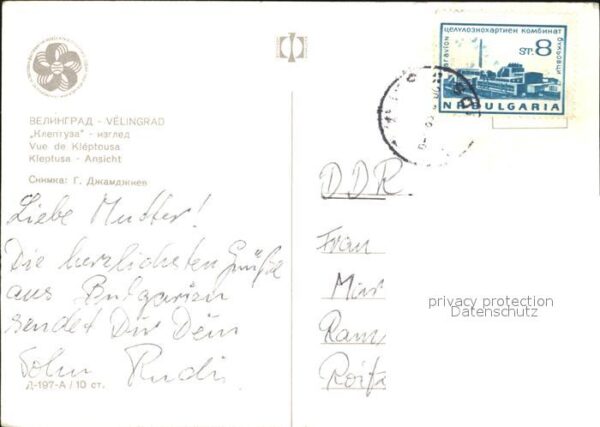 целулознохартиен комбинат
par avion
ст. 8
N R BULGARIA
ВЕЛИНГРАД - VÉLINGRAD
„Клептуза" - изглед
Vue de Kléptousa
Kleptusa - Ansicht
Снимка: Г. Джамджиев
Liebe Mutter!
Die herzlichsten Grüße
aus Bulgarien
sendet Dir Dein
Sohn Rudi
Д-197-А / 10 ст.
DDR
Frau
privacy protection
Datenschutz